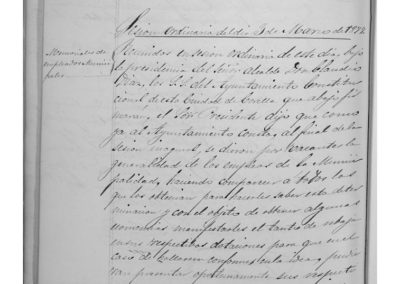 Sesion Ordinaria del dia 3 de Marzo de 1872
Memoriales de
empleados Munici
pales
Reunidos en sesion ordinaria de este dia, bajo
la presidencia del Señor Alcalde Don Claudio
Diaz, los S.S. del Ayuntamiento Constitu
cional de esta Ciudad de que abajo fir
maran, el Sor Presidente dijo que como
ya al Ayuntamiento consta, al final de la
sesion inaugural, se dieron por vacantes la
generalidad de los empleos de la Munici
palidad, haciendo comparecer a todos los
que los obtenian para hacerles saber esta deter
minacion y con el objeto de obtener algunas
economias manifestasen el tanto de rebaja
en sus respectivas dotaciones para que en el
caso de hallarse conformes con la idea, pudie
ran presentar oportunamente sus respecti